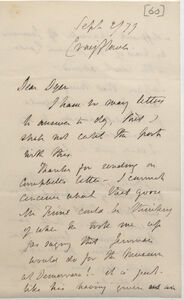 [60]
Sept 2/79
Dear Dyer
I have so many letters
to answer to day that I
shall not catch the post
with this.
Thanks for sending on
Campbell's letter - I cannot
conceive what that goose
Mr. could be thinking
of when he wrote me
saying that Jenman
would do for the Museum
at Demerara! - it is just
like his having given